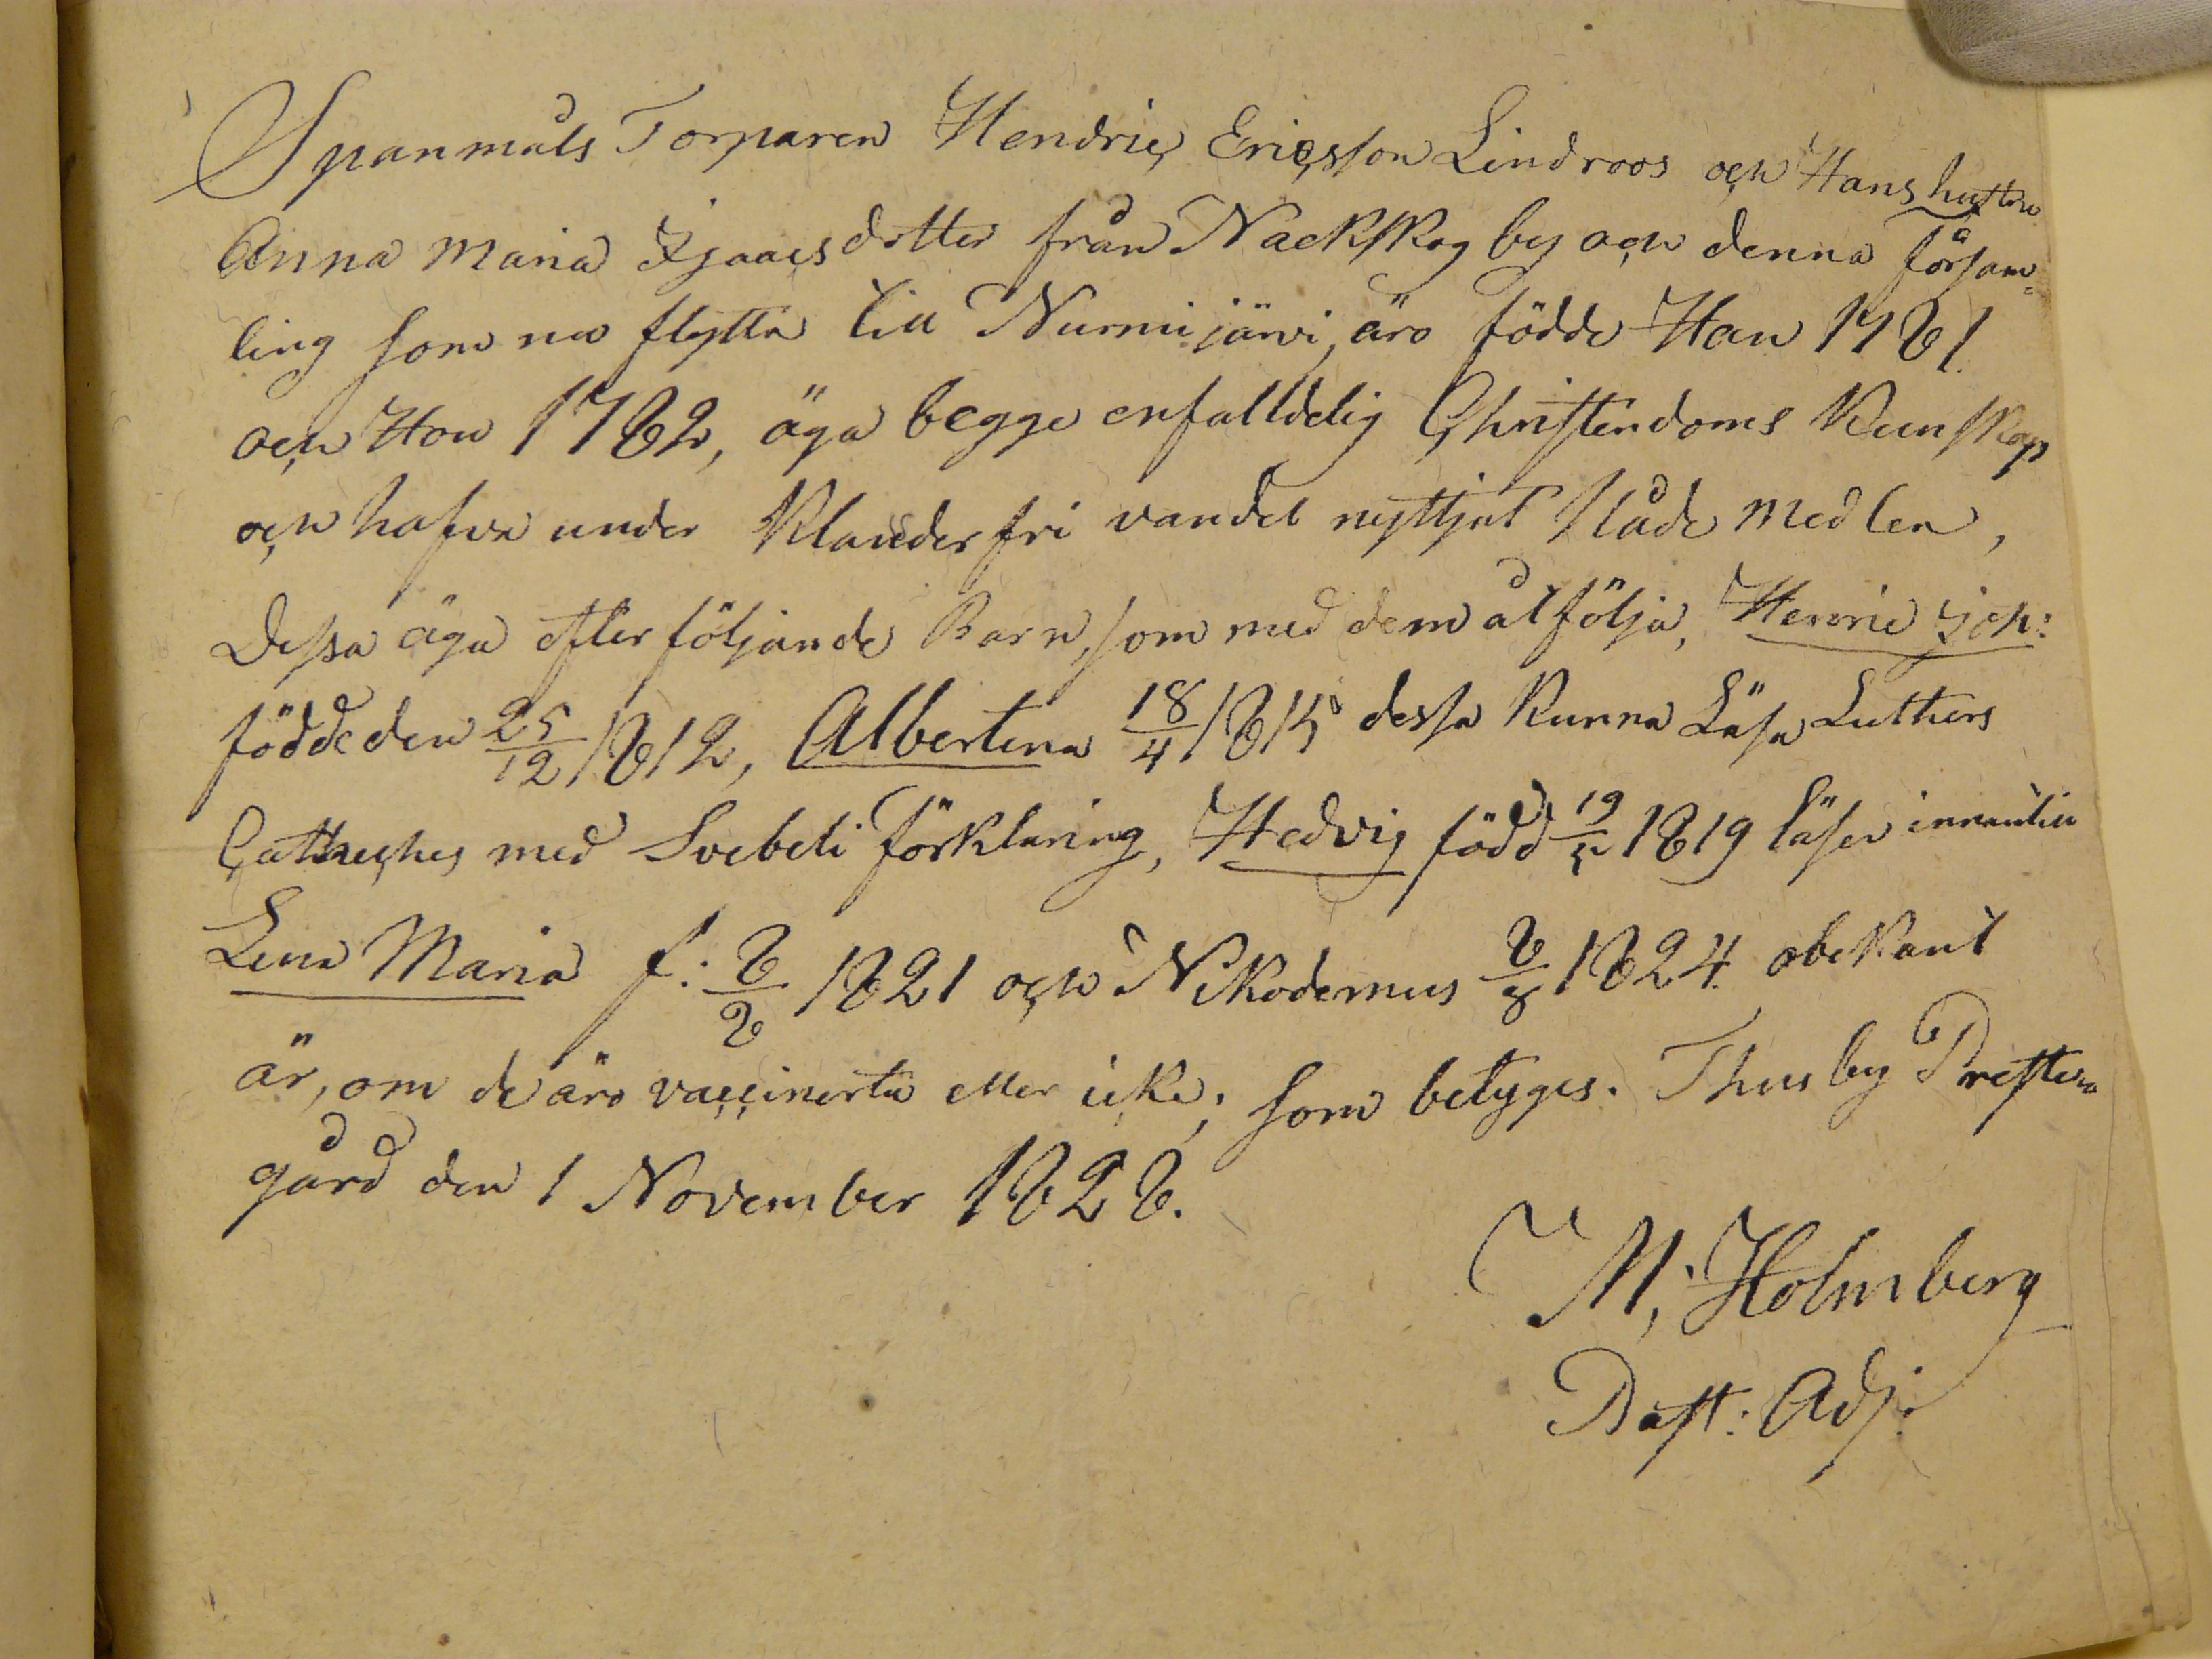 Spanmåls Torparen Hendric Ericsson Lindroos och Hans hustru
Anna Maria Isaacsdotter från Nackskog by och denna försam=
ling som nu flytta till Nurmijärvi, äro födde Han 1781.
och Hon 1782, äga begge enfalldelig Christendoms Kunskap
och hafva under Klanderfri vandel nyttjat Nåde medlen,
Dessa äga efterföljande Barn, som med dem åtfölja, Henric Joh:
födde den 25/12 1812, Albertina 18/4 1815 dessa Kunna Läsa Luthers
Catheches med Svebeli förklaring, Hedvig född 19/5 1819 läser innantill
Lena Maria f: 8/8 1821 och Nikodemus 8/8 1824. obekant
är, om de äro vaccinerta eller icke; som betyges. Thusby Preste=
gård den 1 November 1828.
M: Holmberg
Past: Adj: